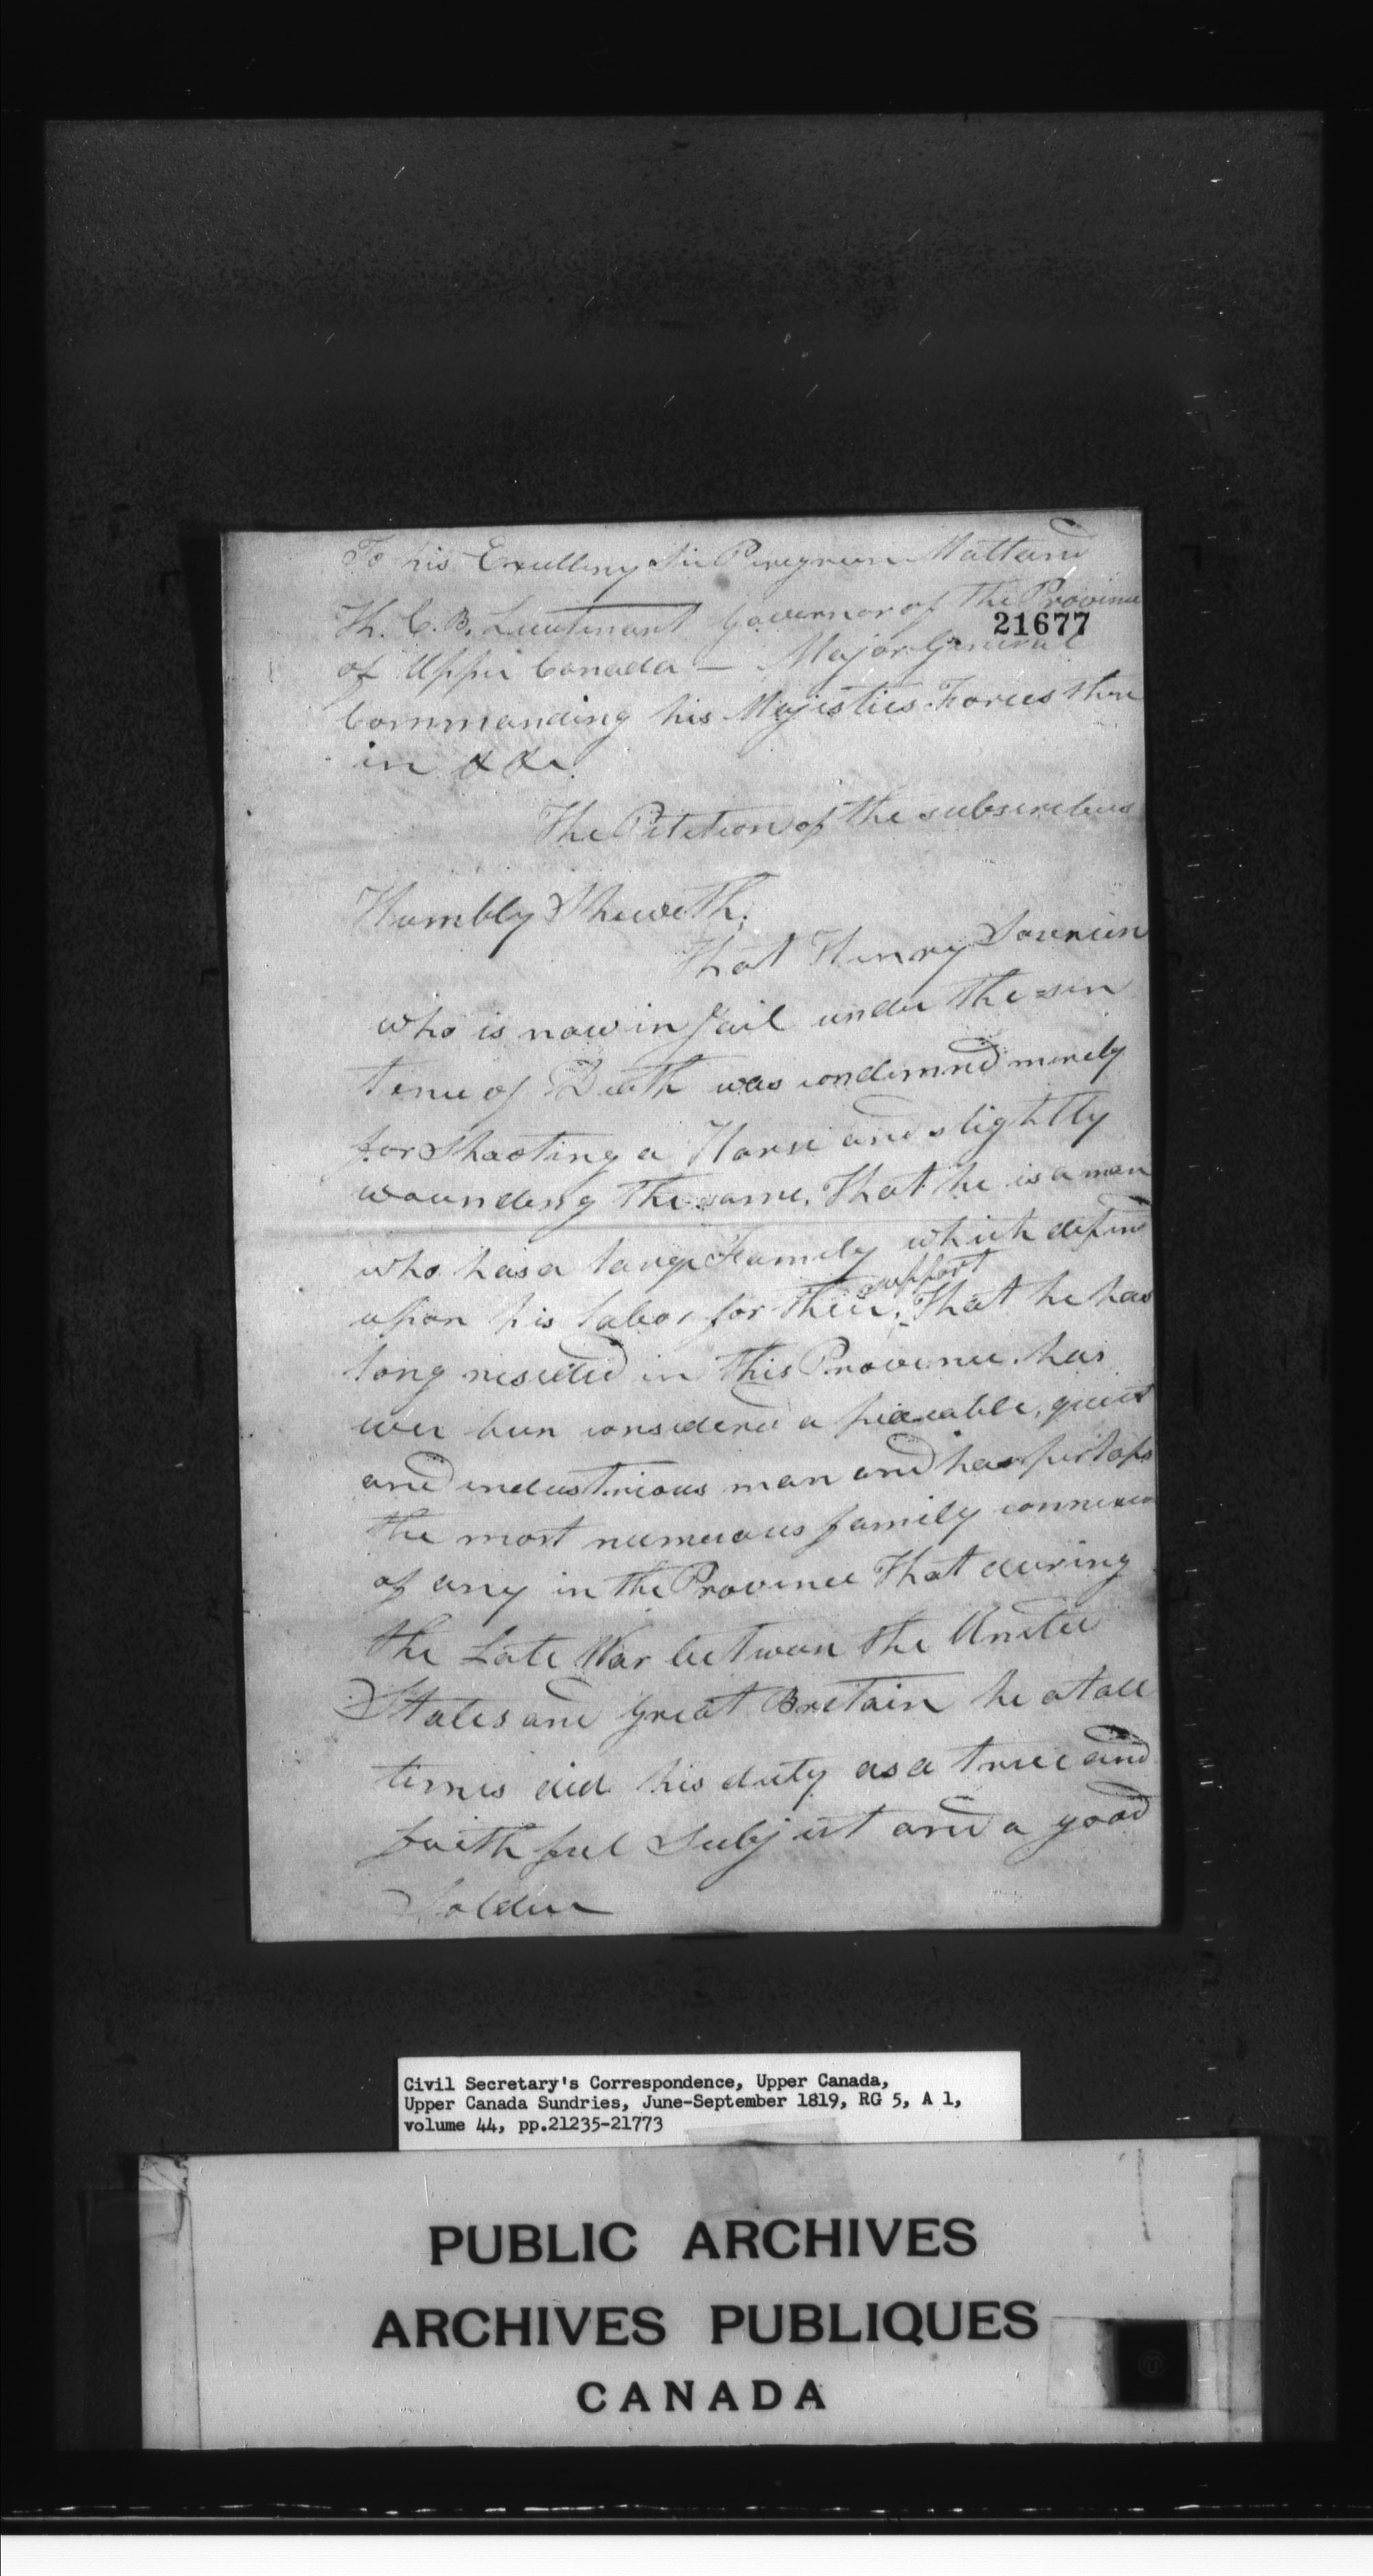 To his Excelleny Sir Peregreen Maitland
K. C. B. Lieutenant Governor of The Province
21677
of Upper Canada — Major General
Commanding his Majesties Forces there
in &c &c
The Petition of the subscribers
Humbly Sheweth,
That Henry
who is now in Jail under the sen
tence of Death was condemned merely
for Shooting a Horse and slightly
wounding the same. That he is a man
who has a large Family which depend
support
upon his labor for their. That he has
long resided in this Province has
ever been considered a peaceable, quiet
and industrious man and has perhaps
the most numerous family connexion
of any in the Province That during
the Late War between the United
States and Great Britain he at all
times did his duty as a true and
faithful Subject and a good
Soldier
Civil Secretary's Correspondence, Upper Canada,
Upper Canada Sundries, June-September 1819, RG 5, A 1,
volume 44, pp.21235-21773
PUBLIC ARCHIVES
ARCHIVES PUBLIQUES
CANADA